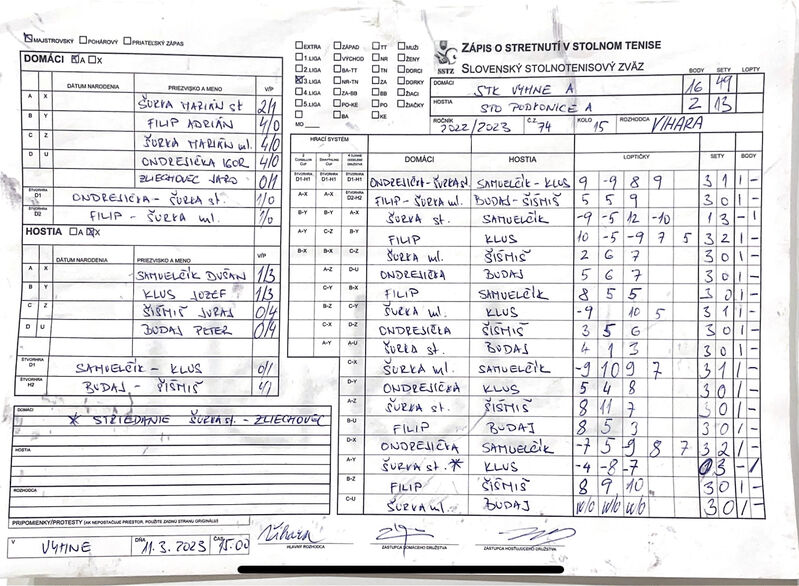 MAJSTROVSKÝ POHÁROVÝ PRIATEĽSKÝ ZÁPAS
DOMÁCI A X
DÁTUM NARODENIA PRIEZVISKO A MENO V/P
A X ŠURKA MARIÁN st 2/1
B Y FILIP ADRIÁN 4/0
C Z ŠURKA MARIÁN ml. 4/0
D U ONDREJIČKA IGOR 4/0
ZLIECHOVEC JARO 0/1
ŠTVORHRA D1 ONDREJIČKA - ŠURKA st. 1/0
ŠTVORHRA D2 FILIP - ŠURKA ml. 1/0
HOSTIA A X
DÁTUM NARODENIA PRIEZVISKO A MENO V/P
A X SAMUELČÍK DUŠAN 1/3
B Y KLUS JOZEF 1/3
C Z ŠIŠMIŠ JURAJ 0/4
D U BUDAJ PETER 0/4
ŠTVORHRA D1 SAMUELČÍK - KLUS 0/1
ŠTVORHRA H2 BUDAJ - ŠIŠMIŠ
DOMÁCI
* STRIEDANIE ŠURKA st. - ZLIECHOVEC
HOSTIA
ROZHODCA
PRIPOMIENKY/PROTESTY (AK NEPOSTAČUJE PRIESTOR, POUŽITE ZADNÚ STRANU ORIGINÁLU)
V VYHNE DŇA 11.3.2023 ČAS 15.00
EXTRA ZÁPAD TT MUŽI
1.LIGA VÝCHOD NR ŽENY
2.LIGA BA-TT TN DORCI
3.LIGA NR-TN ZA DORKY
4.LIGA ZA-BB BB ŽIACI
5.LIGA PO-KE PO ŽIAČKY
MO BA KE
SSTZ
ZÁPIS O STRETNUTÍ V STOLNOM TENISE
SLOVENSKÝ STOLNOTENISOVÝ ZVÄZ
BODY SETY LOPTY
DOMÁCI STK VYHNE A 16 49
HOSTIA STO PODKONICE A 2 13
ROČNÍK 2022/2023 Č.Z. 74 KOLO 15 ROZHODCA VIHARA
HRACÍ SYSTÉM
DOMÁCI HOSTIA LOPTIČKY SETY BODY
D1-H1 D1-H1 D1-H1 ONDREJIČKA-ŠURKA st. SAMUELČÍK - KLUS 9 -9 8 9 3 1 1 -
A-X A-X D2-H2 FILIP - ŠURKA ml. BUDAJ - ŠIŠMIŠ 5 5 9 3 0 1 -
B-Y B-Y A-X ŠURKA st. SAMUELČÍK -9 -5 12 -10 1 3 - 1
A-Y C-Z B-Y FILIP KLUS 10 -5 -9 7 5 3 2 1 -
B-X B-X C-Z ŠURKA ml. ŠIŠMIŠ 2 6 7 3 0 1 -
A-Z D-U ONDREJIČKA BUDAJ 5 6 7 3 0 1 -
C-Y B-X FILIP SAMUELČÍK 8 5 5 3 0 1 -
B-Z C-Y ŠURKA ml. KLUS -9 10 5 3 1 1 -
C-X D-Z ONDREJIČKA ŠIŠMIŠ 3 5 6 3 0 1 -
A-Y A-U ŠURKA st. BUDAJ 4 1 3 3 0 1 -
C-X ŠURKA ml. SAMUELČÍK -9 10 9 7 3 1 1 -
D-Y ONDREJIČKA KLUS 5 4 8 3 0 1 -
A-Z ŠURKA st. ŠIŠMIŠ 8 11 7 3 0 1 -
B-U FILIP BUDAJ 8 5 3 3 0 1 -
D-X ONDREJIČKA SAMUELČÍK -7 5 9 8 7 3 2 1 -
A-Y ŠURKA st. * KLUS -4 -8 -7 0 3 - 1
B-Z FILIP ŠIŠMIŠ 8 9 10 3 0 1 -
C-U ŠURKA ml. BUDAJ w/o w/o w/o 3 0 1 -
Vihara
HLAVNÝ ROZHODCA ZÁSTUPCA DOMÁCEHO DRUŽSTVA ZÁSTUPCA HOSŤUJÚCEHO DRUŽSTVA